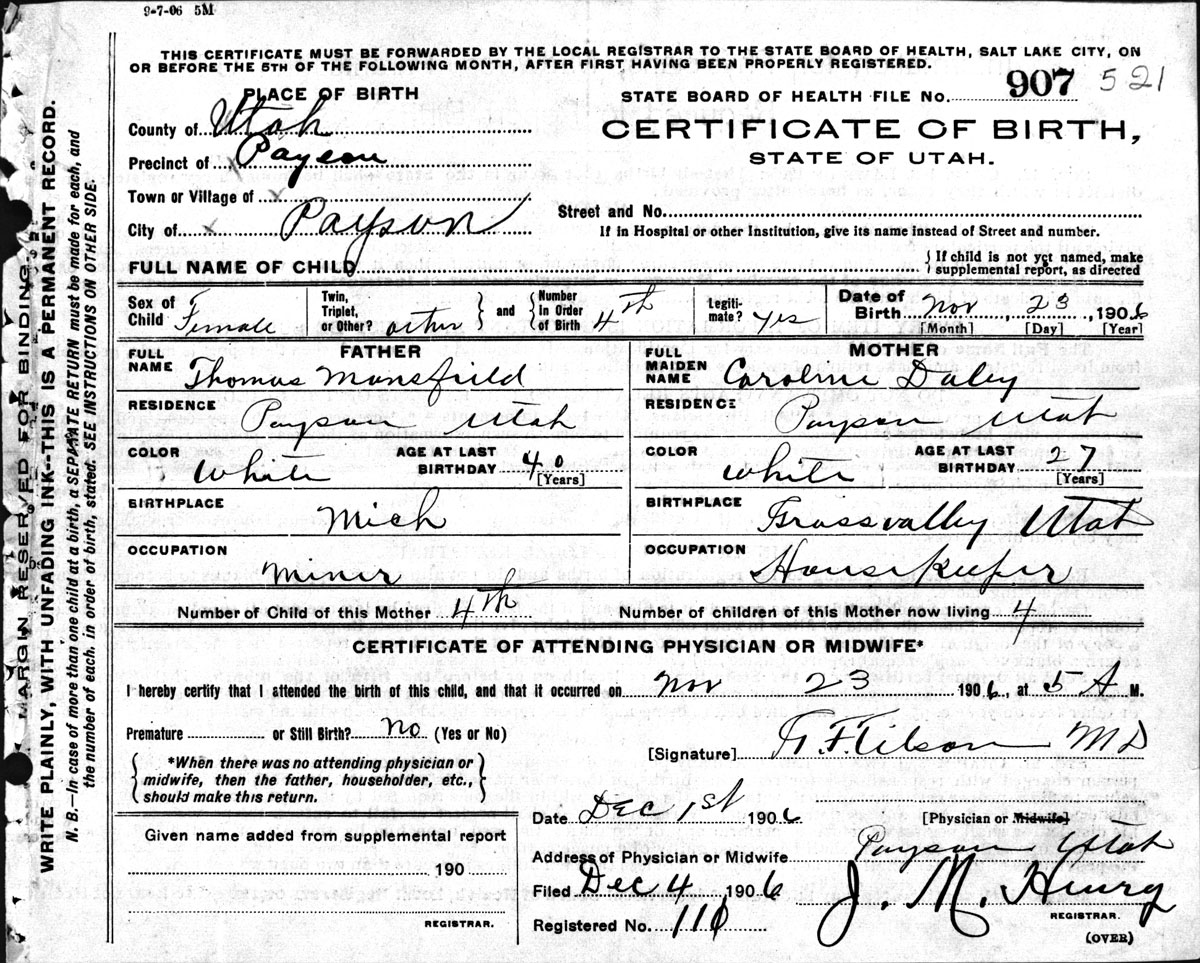 9-7-06 5M
THIS CERTIFICATE MUST BE FORWARDED BY THE LOCAL REGISTRAR TO THE STATE BOARD OF HEALTH, SALT LAKE CITY, ON
OR BEFORE THE 5TH OF THE FOLLOWING MONTH, AFTER FIRST HAVING BEEN PROPERLY REGISTERED.
PLACE OF BIRTH
STATE BOARD OF HEALTH FILE No. 907 521
County of Utah
CERTIFICATE OF BIRTH,
STATE OF UTAH.
Precinct of x Payson
Town or Village of x
City of x Payson
Street and No.
If in Hospital or other Institution, give its name instead of Street and number.
FULL NAME OF CHILD
{If child is not yet named, make
supplemental report, as directed
Sex of Child Female Twin, Triplet, or Other? other } and { Number in Order of Birth 4th Legiti-mate? yes Date of Birth Nov, 23, 1906
[Month] [Day] [Year]
FATHER
FULL NAME Thomas Mansfield
RESIDENCE Payson Utah
COLOR White AGE AT LAST BIRTHDAY 40
[Years]
BIRTHPLACE Mich
OCCUPATION Miner
MOTHER
FULL MAIDEN NAME Caroline Daley
RESIDENCE Payson Utah
COLOR White AGE AT LAST BIRTHDAY 27
[Years]
BIRTHPLACE Grassvalley Utah
OCCUPATION Housekeeper
Number of Child of this Mother 4th Number of children of this Mother now living 4
CERTIFICATE OF ATTENDING PHYSICIAN OR MIDWIFE*
I hereby certify that I attended the birth of this child, and that it occurred on Nov 23 1906, at A M.
Premature or Still Birth? No (Yes or No)
[Signature] Tilson MD
{*When there was no attending physician or
midwife, then the father, householder, etc.,
should make this return.}
Date Dec 1st 1906
[Physician or Midwife]
Given name added from supplemental report
190
REGISTRAR.
Address of Physician or Midwife Payson Utah
Filed Dec 4 1906
J. M. Henry
REGISTRAR.
Registered No. 110
(OVER)
MARGIN RESERVED FOR BINDING.
WRITE PLAINLY, WITH UNFADING INK--THIS IS A PERMANENT RECORD.
N. B.—In case of more than one child at a birth, a SEPARATE RETURN must be made for each, and
the number of each, in order of birth, stated. SEE INSTRUCTIONS ON OTHER SIDE.